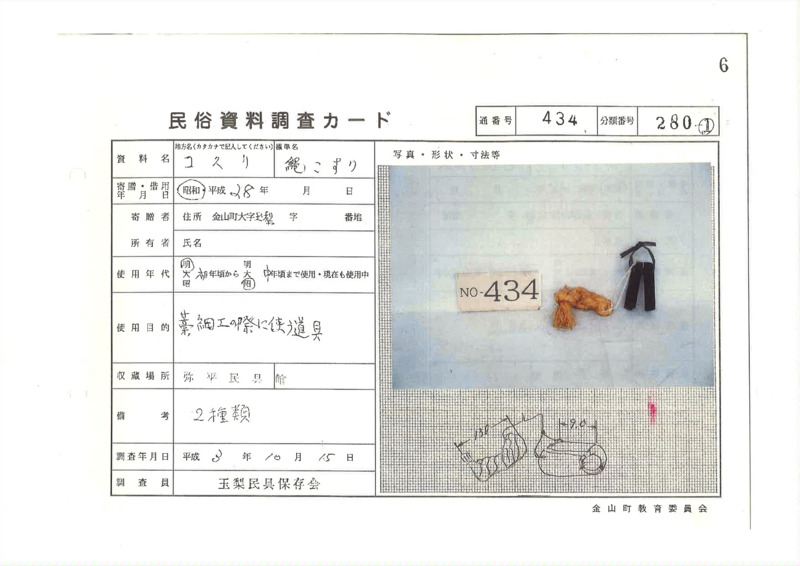 6
民俗資料調査カード
通番号 434 分類番号 280-①
資料名 地方名(カタカナで記入してください) コスリ 標準名 縄こすり
写真・形状・寸法等
寄贈・借用年月日 昭和・平成 28年 月 日
寄贈者 住所 金山町大字玉梨 字 番地
所有者 氏名
使用年代 明大昭 初年頃から 明大昭 中年頃まで使用・現在も使用中
使用目的 藁細工の際に使う道具
収蔵場所 弥平民具館
備考 2種類
調査年月日 平成 3年 10月 15日
調査員 玉梨民具保存会
NO-434
130
9.0
金山町教育委員会